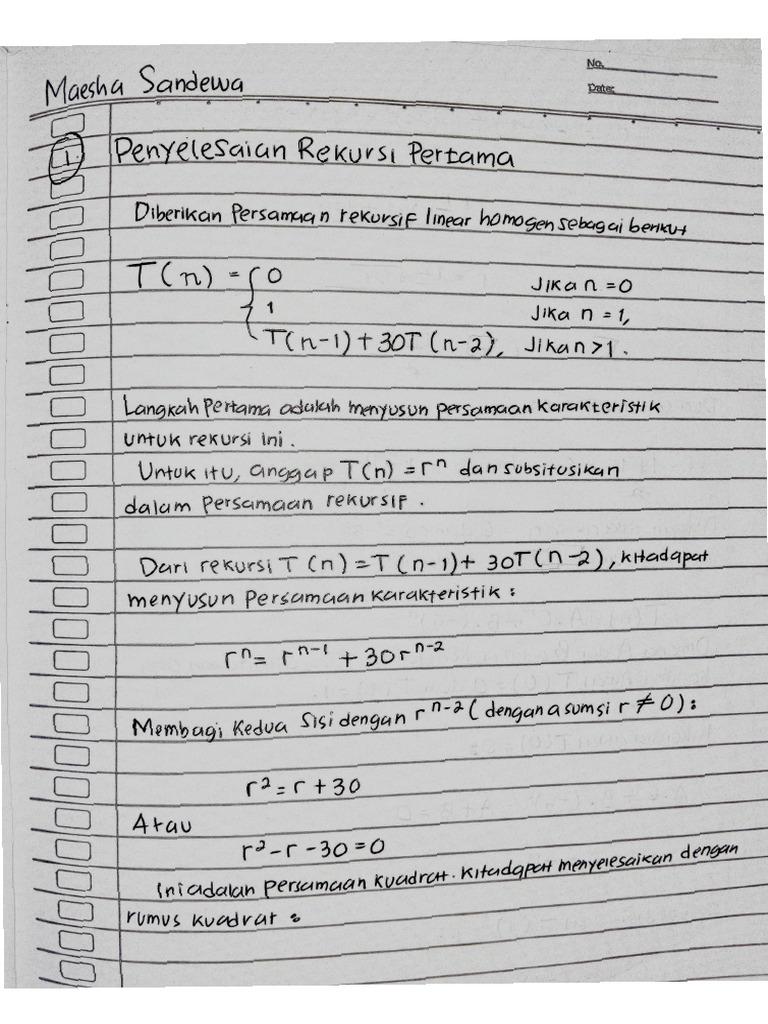 Maesha Sandewa
No.
Date:
1. Penyelesaian Rekursi Pertama
Diberikan Persamaan rekursif linear homogen sebagai berikut
T(n) = { 0 Jika n = 0
1 Jika n = 1,
T(n-1) + 30T(n-2), Jika n > 1.
Langkah Pertama adalah menyusun persamaan karakteristik
untuk rekursi ini.
Untuk itu, anggap T(n) = rⁿ dan subsitusikan
dalam persamaan rekursif.
Dari rekursi T(n) = T(n-1) + 30T(n-2), kita dapat
menyusun Persamaan karakteristik :
rⁿ = rⁿ⁻¹ + 30rⁿ⁻²
Membagi Kedua Sisi dengan rⁿ⁻² (dengan asumsi r ≠ 0) :
r² = r + 30
Atau
r² - r - 30 = 0
Ini adalan persamaan kuadrat. Kita dapat menyelesaikan dengan
rumus kuadrat :